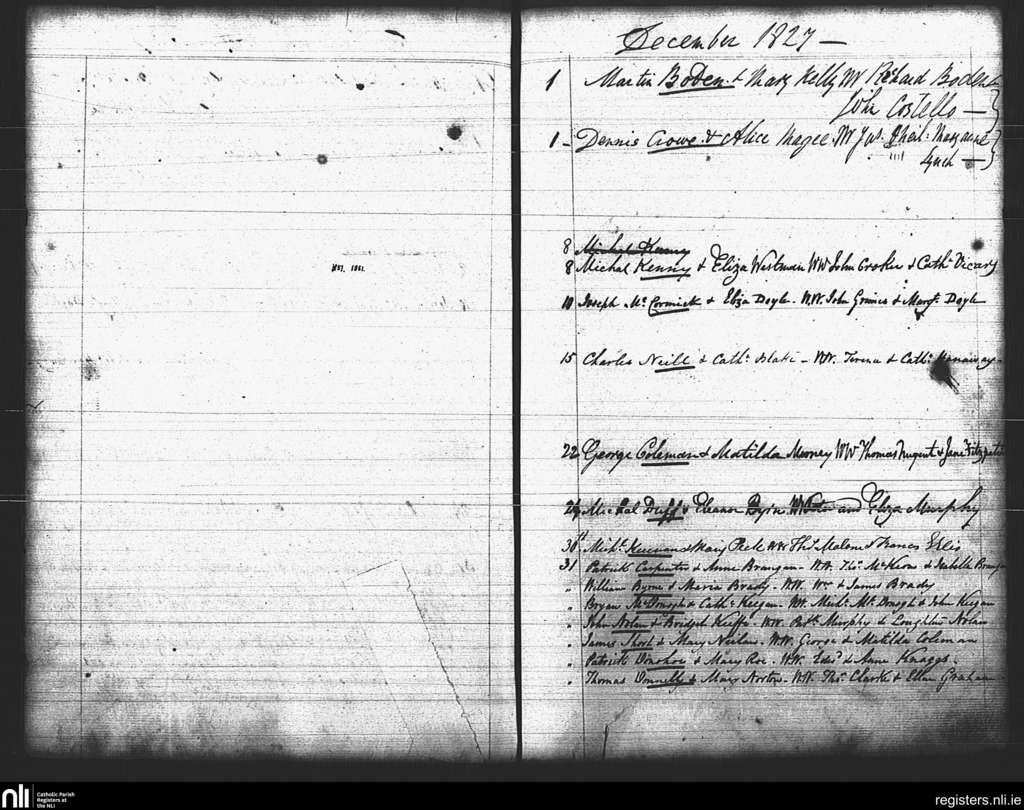 December 1827 —
1 Martin Boden & Mary Kelly WW Richard Boden &
John Costello —
1 - Dennis Crowe & Alice Magee. WW Jas. Maryanne
Lynch —
8 Michal Kenny
8 Michal Kenny & Eliza Westman WW John Crosker & Cath. Vicary
10 Joseph McCormick & Eliza Doyle - WW. John Grimes & Margt. Doyle
15 Charles Neill & Cath. Blake - WW. & Cath.
22 George Coleman & Matilda Mooney WW Thomas Nugent & Jane Fitzpatrick
24 Michal Duff & Eleanor Byrn WW and Eliza Murphy
30th Michl. & Mary WW Thos. Malone & Francis
31 Patrick Carpenter & Anne Brangan - WW. Thos. McKeon & Isabella Brangan
" William Byrne & Maria Brady - WW. Wm. & James Brady
" Bryan McDonogh & Cathe. Keegan - WW. Michl. McDonogh & John Keegan
" John Nolan & Bridget Keeffe - WW. Patt. Murphy & Loughlin Nolan
" James Short & Mary - WW. George & Matilda Coleman
" Patrick Donohoe & Mary Roe - WW. Edwd. & Anne Knaggs.
" Thomas Donnelly & Mary Norton - WW. Thos. Clarke & Ellen Graham
nli
Catholic Parish
Registers at
the NLI
registers.nli.ie